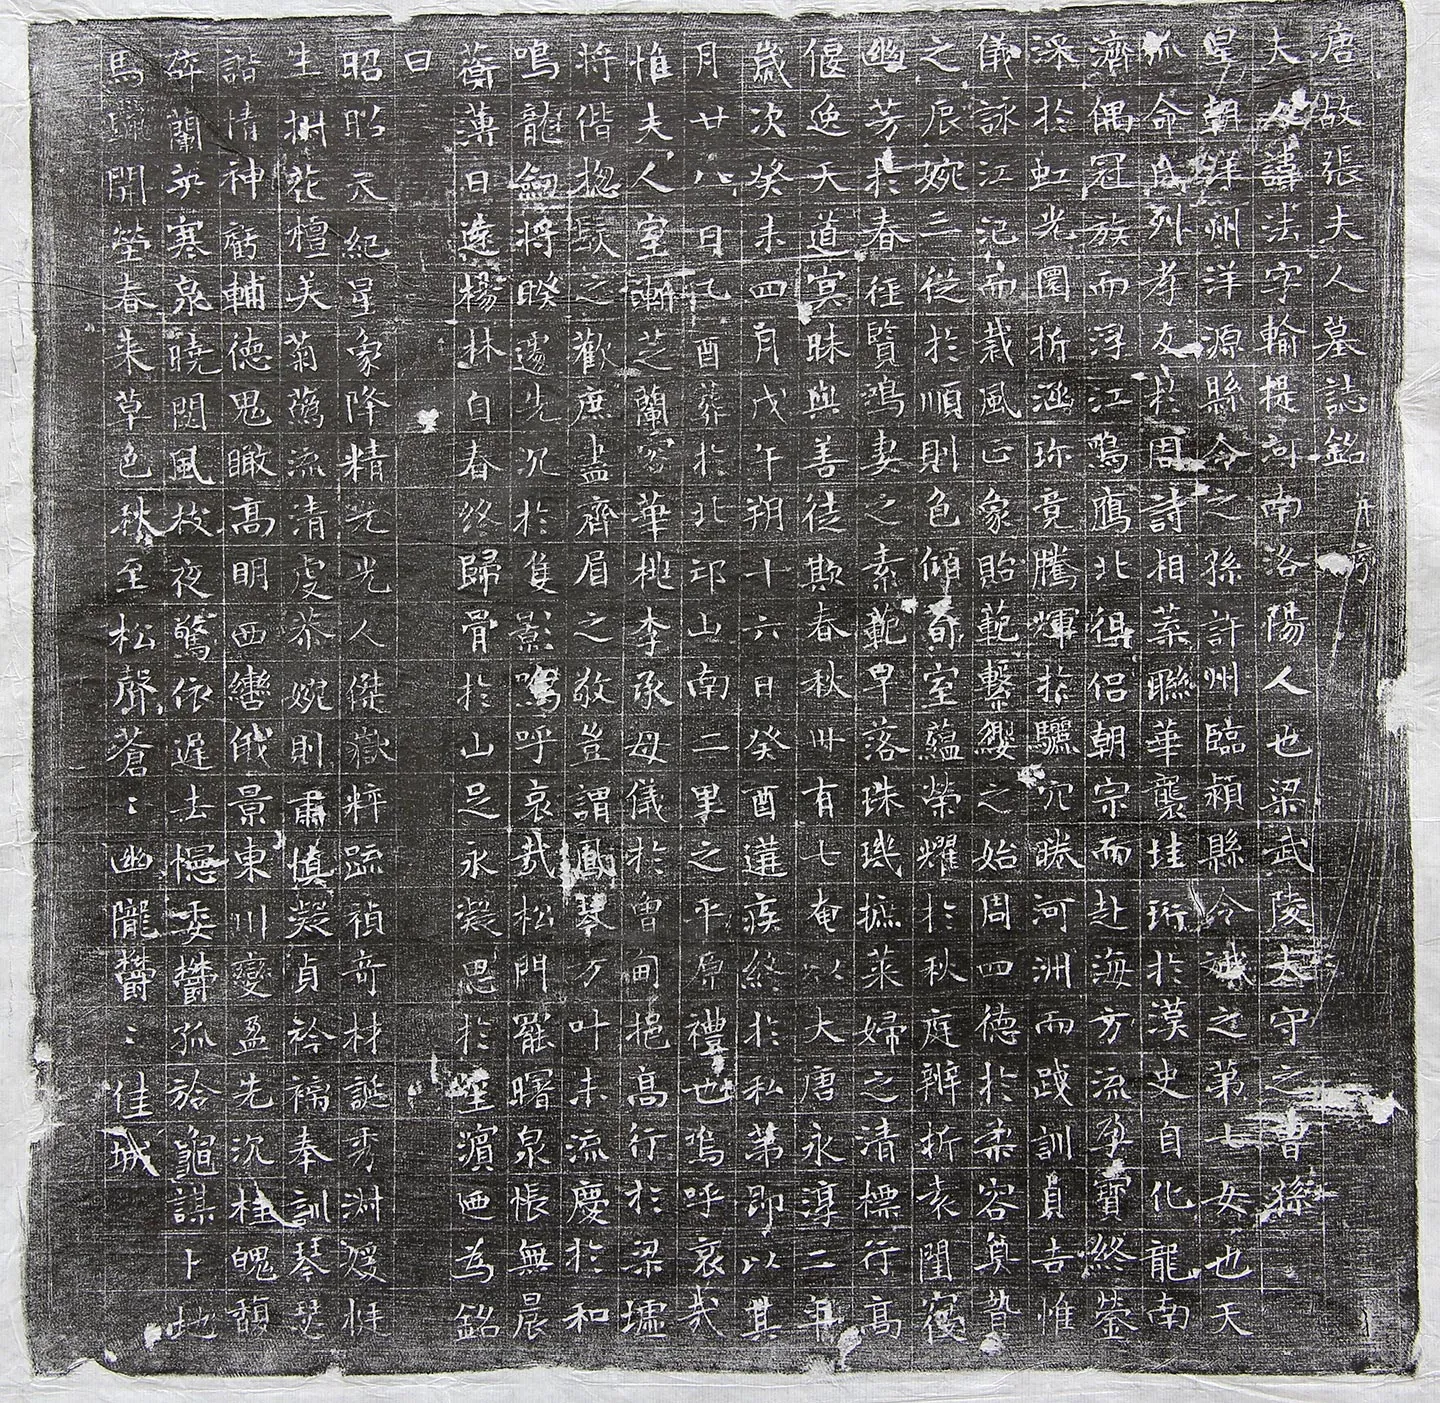 唐故張夫人墓誌銘 并序
夫人諱法字輸提河南洛陽人也梁武陵太守之曾孫
皇朝洋州洋源縣令之孫許州臨潁縣令誠之第七女也天
孤命氏列孝友於周詩相菜聯華襲珪珩於漢史自化龍南
濟偶冠族而浮江鳴鴈北徂侶朝宗而赴海方流孕寶終瑩
深於虹光圓折涵珎竟騰輝於驪穴睠河洲而踐訓貟吉惟
儀詠江汜而裁風正象貽範繫纓之始周四德於柔容奠贄
之辰婉三從於順則色傾荀室蘊榮耀於秋庭辭折袁閨寝
幽芳於春徑賢鴻妻之素範早落珠璣摭萊婦之清標行高
偃逸天道冥昧與善徒欺春秋卌有七奄以大唐永淳二年
歲次癸未四月戊午朔十六日癸酉遘疾終於私第即以其
月廿八日乙酉葬於北邙山南二里之平原禮也嗚呼哀哉
惟夫人室蘭芝蘭容華桃李承母儀於曾甸挹高行於梁墟
將偕揔歘之歡庶盡齊眉之敬豈謂鳳琴方叶未流慶於和
鳴龍劒將睽遽先沉於隻影嗚呼哀哉松門罷曙泉悵無晨
薤薄日遠楊林白春終歸骨於山足永凝思於埏濱迺為銘
曰
昭昭天紀星象降精光光人傑嶽粹疏禎奇材誕秀淑媛挺
生樹花檀美菊蘂流清虔恭婉則肅慎凝貞衿褵奉訓琴瑟
諧情神虧輔德鬼瞰高明西巒俄景東川變盈先沉桂魄馥
碎蘭永寒泉曉閟風枝夜驚依遲去幰委欝孤旍龜謀卜地
馬鬣開塋春来草色秋至松聲蒼〻幽隴欝〻佳城